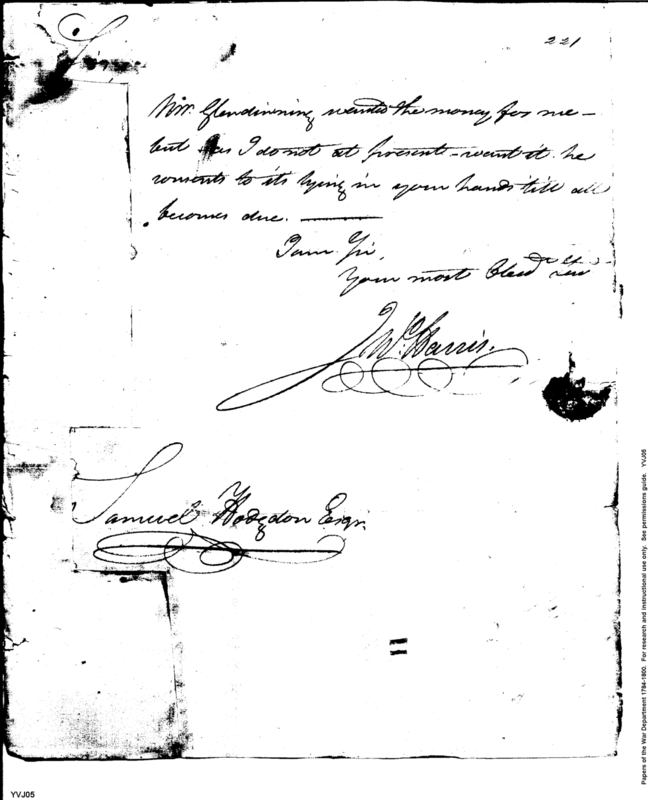 221
Mr. Glendinning wanted the money for me —
but as I do not at present want it he
consents to its lying in your hands till all
becomes due. ———
I am Sir,
Your most Obed
Wm. Harris.
Samuel Hodgdon Esqr.
YVJ05
Papers of the War Department 1784-1800. For research and instructional use only. See permissions guide. YVJ05